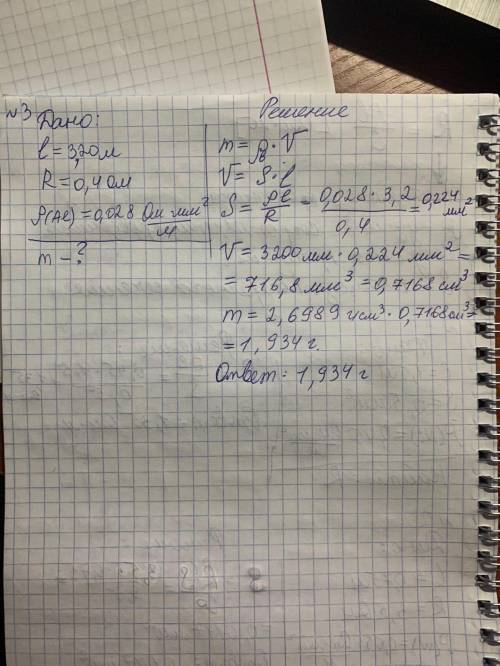 №3 Дано:
l = 3,20 м
R = 0,4 Ом
ρ(Al) = 0,028 Ом·мм²/м
m - ?
Решение
m = ρв · V
V = S · l
S = ρl/R = 0,028 · 3,2/0,4 = 0,224 мм²
V = 3200 мм · 0,224 мм² =
= 716,8 мм³ = 0,7168 см³
m = 2,6989 г/см³ · 0,7168 см³ =
= 1,934 г.
Ответ: 1,934 г